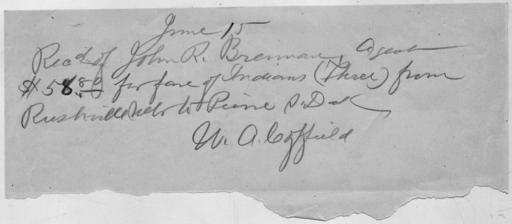 June 15
Rec'd of John R. Brennan, Agent
$58.80 for fare of Indians (Three) from
Rushville Nebr to Pierre S. Dak
W. A. Coffield